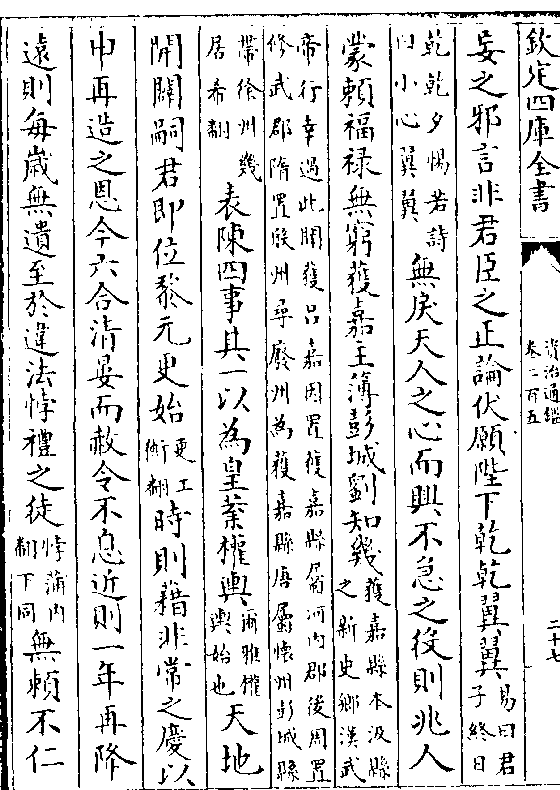 欽定四庫全書
資治通鑑
卷二百五
二十七
妄之邪言非君臣之正論伏願陛下乾乾翼翼易曰君子終日
乾乾夕惕若詩曰小心翼翼無戾天人之心而興不急之役則兆人
蒙賴福祿無窮獲嘉主簿彭城劉知幾獲嘉縣本汲縣之新史鄉漢武
帝行幸過此聞獲呂嘉因置獲嘉縣屬河内郡後周置修武郡隋置殷州尋廢州為獲嘉縣唐屬懷州彭城縣
帶徐州幾居希翻表陳四事其一以為皇業權輿爾雅權輿始也天地
開闢嗣君即位黎元更始更工衡翻時則藉非常之慶以
申再造之恩今六合清晏而赦令不息近則一年再降
遠則每歲無遺至於違法悖禮之徒悖蒲内翻下同無賴不仁